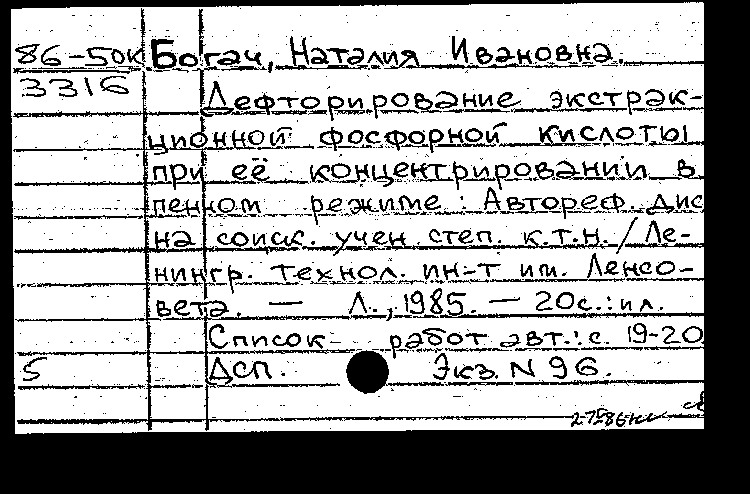 86-50к Богач, Наталия Ивановна.
3316 Дефторирование экстрак-
ционной фосфорной кислоты
при её концентрировании в
пенном режиме: Автореф. дис
на соиск. учен. степ. к.т.н. / Ле-
нингр. технол. ин-т им. Ленсо-
вета. — Л., 1985. — 20с.: ил.
Список работ авт.: с. 19-20
5 Дсп. Экз. N 96.